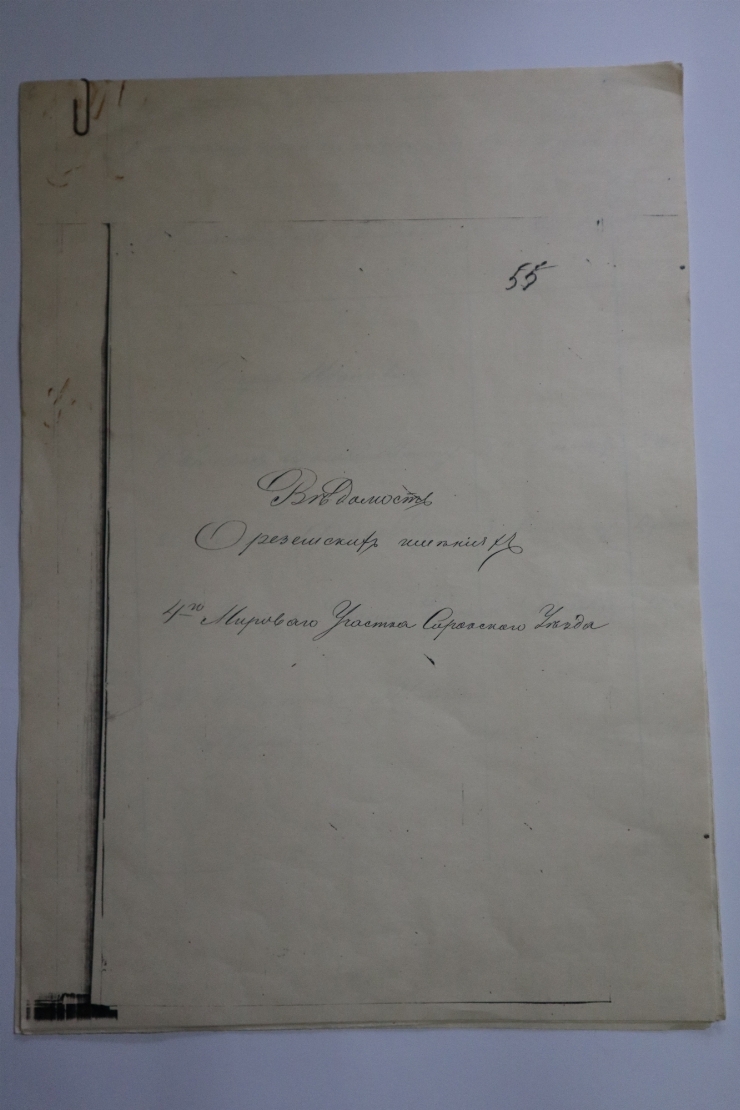 55
Вѣдомость
О резешскихъ имѣнiяхъ
4го Мироваго Участка Сорокскаго Уѣзда